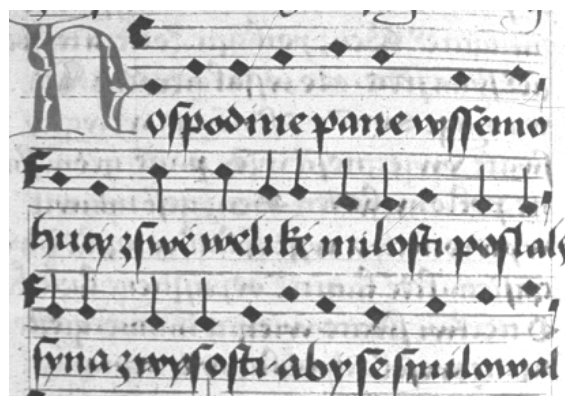 Hospodine pane wssemo
hucy zswé weliké milosti poslaly
syna z wysosti aby se smilowal